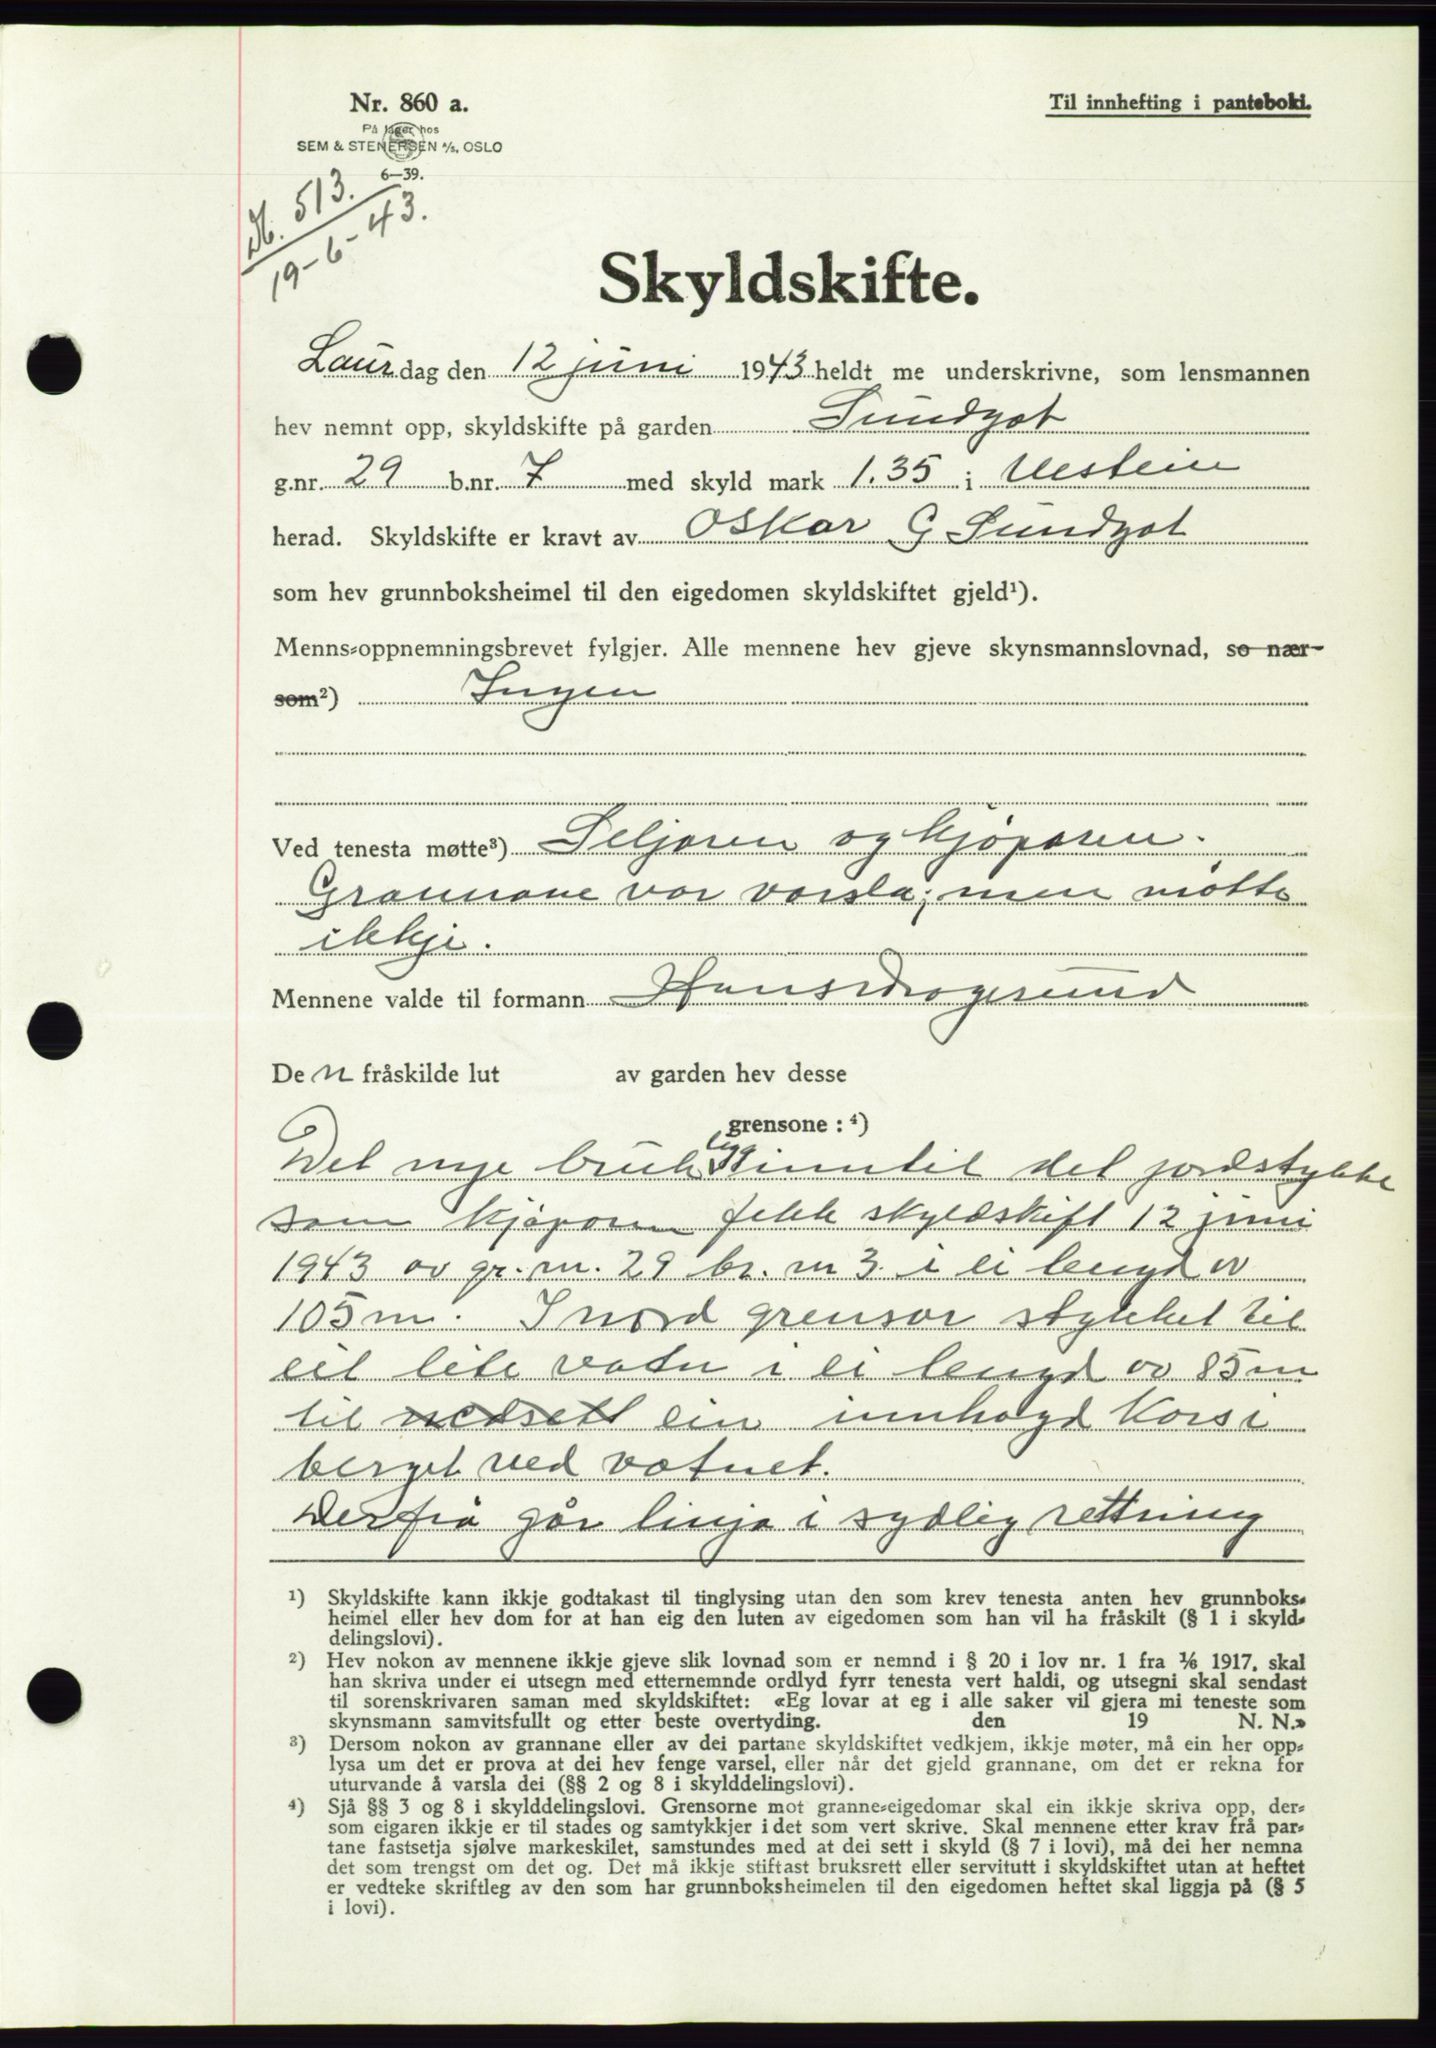 Nr. 860 a.
Til innhefting i panteboki.
På lager hos
SEM & STENERSEN A/S, OSLO
6—39.
Nr. 513.
19-6-43.
Skyldskifte.
Laurdag den 12 juni 1943 heldt me underskrivne, som lensmannen
hev nemnt opp, skyldskifte på garden Sundgot
g.nr. 29 b.nr. 7 med skyld mark 1.35 i Ulstein
herad. Skyldskifte er kravt av Oskar G Sundgot
som hev grunnboksheimel til den eigedomen skyldskiftet gjeld¹).
Menns-oppnemningsbrevet fylgjer. Alle mennene hev gjeve skynsmannslovnad, so nær-
som²) Ingen
Ved tenesta møtte³) Seljaren og kjøparen.
Grannane var varsla; men møtte
ikkje.
Mennene valde til formann Hans Dragesund
De n fråskilde lut av garden hev desse
grensone : ⁴)
Det nye bruk ligg inntil det jordstykke
som kjøparen fekk skyldskift 12 juni
1943 av gr. nr. 29 br. nr 3 i ei lengd av
105 m. I nord grensar stykket til
eit lite vatn i ei lengd av 85 m
til nedsett ein innhogd kors i
berget ved vatnet.
Derfrå går linja i sydlig rettning
¹) Skyldskifte kann ikkje godtakast til tinglysing utan den som krev tenesta anten hev grunnboks-
heimel eller hev dom for at han eig den luten av eigedomen som han vil ha fråskilt (§ 1 i skyld-
delingslovi).
²) Hev nokon av mennene ikkje gjeve slik lovnad som er nemnd i § 20 i lov nr. 1 fra 1/6 1917, skal
han skriva under ei utsegn med etternemnde ordlyd fyrr tenesta vert haldi, og utsegni skal sendast
til sorenskrivaren saman med skyldskiftet: «Eg lovar at eg i alle saker vil gjera mi teneste som
skynsmann samvitsfullt og etter beste overtyding. den 19 N. N.»
³) Dersom nokon av grannane eller av dei partane skyldskiftet vedkjem, ikkje møter, må ein her opp-
lysa um det er prova at dei hev fenge varsel, eller når det gjeld grannane, om det er rekna for
uturvande å varsla dei (§§ 2 og 8 i skylddelingslovi).
⁴) Sjå §§ 3 og 8 i skylddelingslovi. Grensorne mot granne-eigedomar skal ein ikkje skriva opp, der-
som eigaren ikkje er til stades og samtykkjer i det som vert skrive. Skal mennene etter krav frå par-
tane fastsetja sjølve markeskilet, samstundes med at dei sett i skyld (§ 7 i lovi), må dei her nemna
det som trengst om det og. Det må ikkje stiftast bruksrett eller servitutt i skyldskiftet utan at heftet
er vedteke skriftleg av den som har grunnboksheimelen til den eigedomen heftet skal liggja på (§ 5
i lovi).